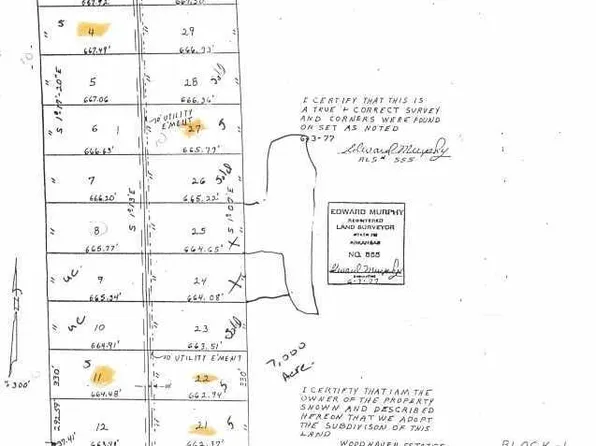 667.92' 667.30'
S 4 29
667.49' 666.93'
5 28 Sold
667.06 666.36'
S 1°19'-20"E
10' UTILITY
E'MENT
6 27 S
666.63' 665.77'
7 26 Sold
666.20' 665.22'
S 1°13'E S 1°00'E
8 25
665.77' 664.65' X
UC 9 24 X
665.34' 664.08'
UC 10 23 Sold
664.91' 663.51'
10 UTILITY E'MENT
S
330' 11 22 S
664.48' 662.94'
292.59
12 21 S
37.41'
662.37'
1"=300'
7,000
Acre.
I CERTIFY THAT THIS IS
A TRUE & CORRECT SURVEY
AND CORNERS WERE FOUND
OR SET AS NOTED
6-3-77
Edward Murphy
RLS# 555
EDWARD MURPHY
REGISTERED
LAND SURVEYOR
STATE OF
ARKANSAS
NO. 555
Edward Murphy
6-3-77
I CERTIFTY THAT I AM THE
OWNER OF THE PROPERTY
SHOWN AND DESCRIBED
HEREON THAT WE ADOPT
THE SUBDIVISON OF THIS
LAND
WOODHAVEN ESTATES
BLOCK